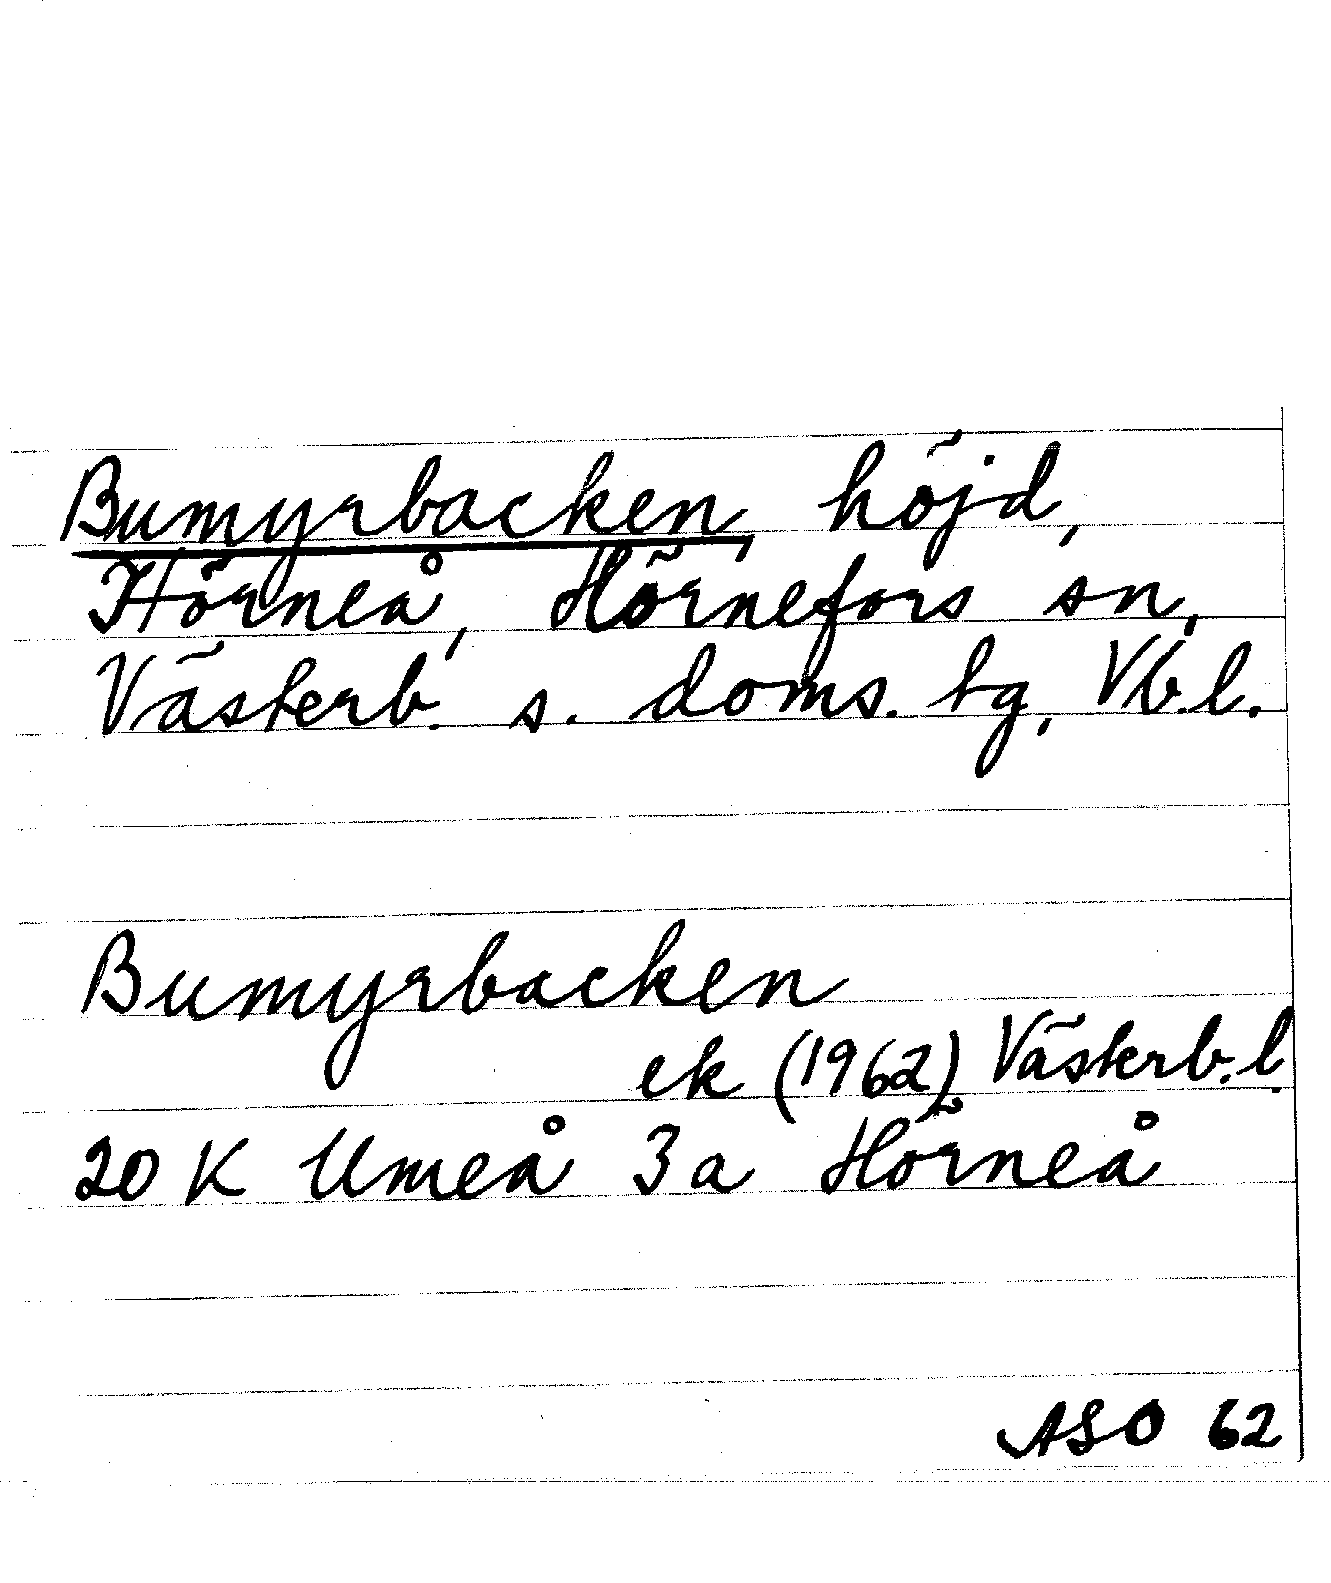 Bumyrbacken, höjd,
Hörneå, Hörnefors sn,
Västerb. s. doms. tg, Vb.l.
Bumyrbacken
ek (1962) Västerb.l.
20 K Umeå 3a Hörneå
ASO 62